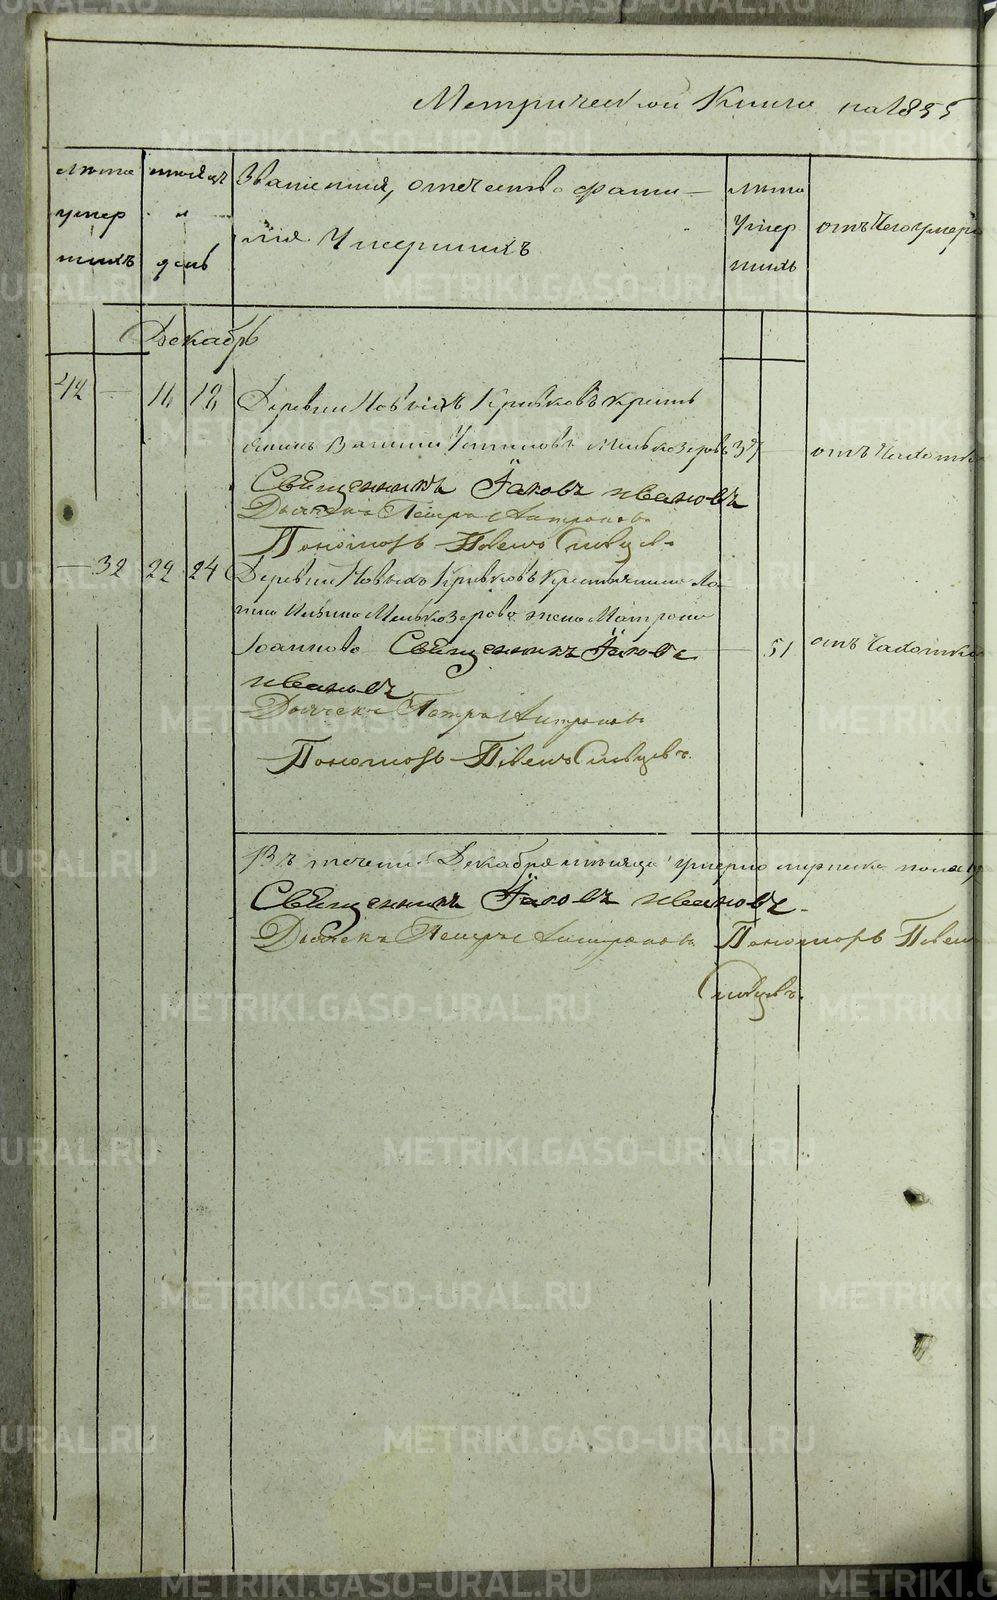 Метрической Книги на 1855
лѣта
умер
шихъ
месяцъ
и
день
Званiе, отчество фами-
лия Умершихъ
лѣта
Умер
шихъ
отъ Чего умер
Декабрь
42 — 16 18 Деревни Новыхъ Кривковъ Крестъ
янинъ Мелькозеровъ 37 — отъ Чахотки
Священникъ Iаковъ Ивановъ
Дьячекъ Петръ Антроповъ
Пономарь Павелъ Сивцевъ
— 32 22 24 Деревни Новыхъ Кривковъ Крестьянина
Мелькозерова жена Матрона
Iоаннова Священникъ Iаковъ — 51 отъ Чахотки
Ивановъ
Дьячекъ Петръ Антроповъ
Пономарь Павелъ Сивцевъ
Въ течении Декабря месяца умерло мужеска пола
Священникъ Iаковъ Ивановъ
Дьячекъ Петръ Антроповъ Пономарь Павелъ
Сивцевъ.
METRIKI.GASO-URAL.RU